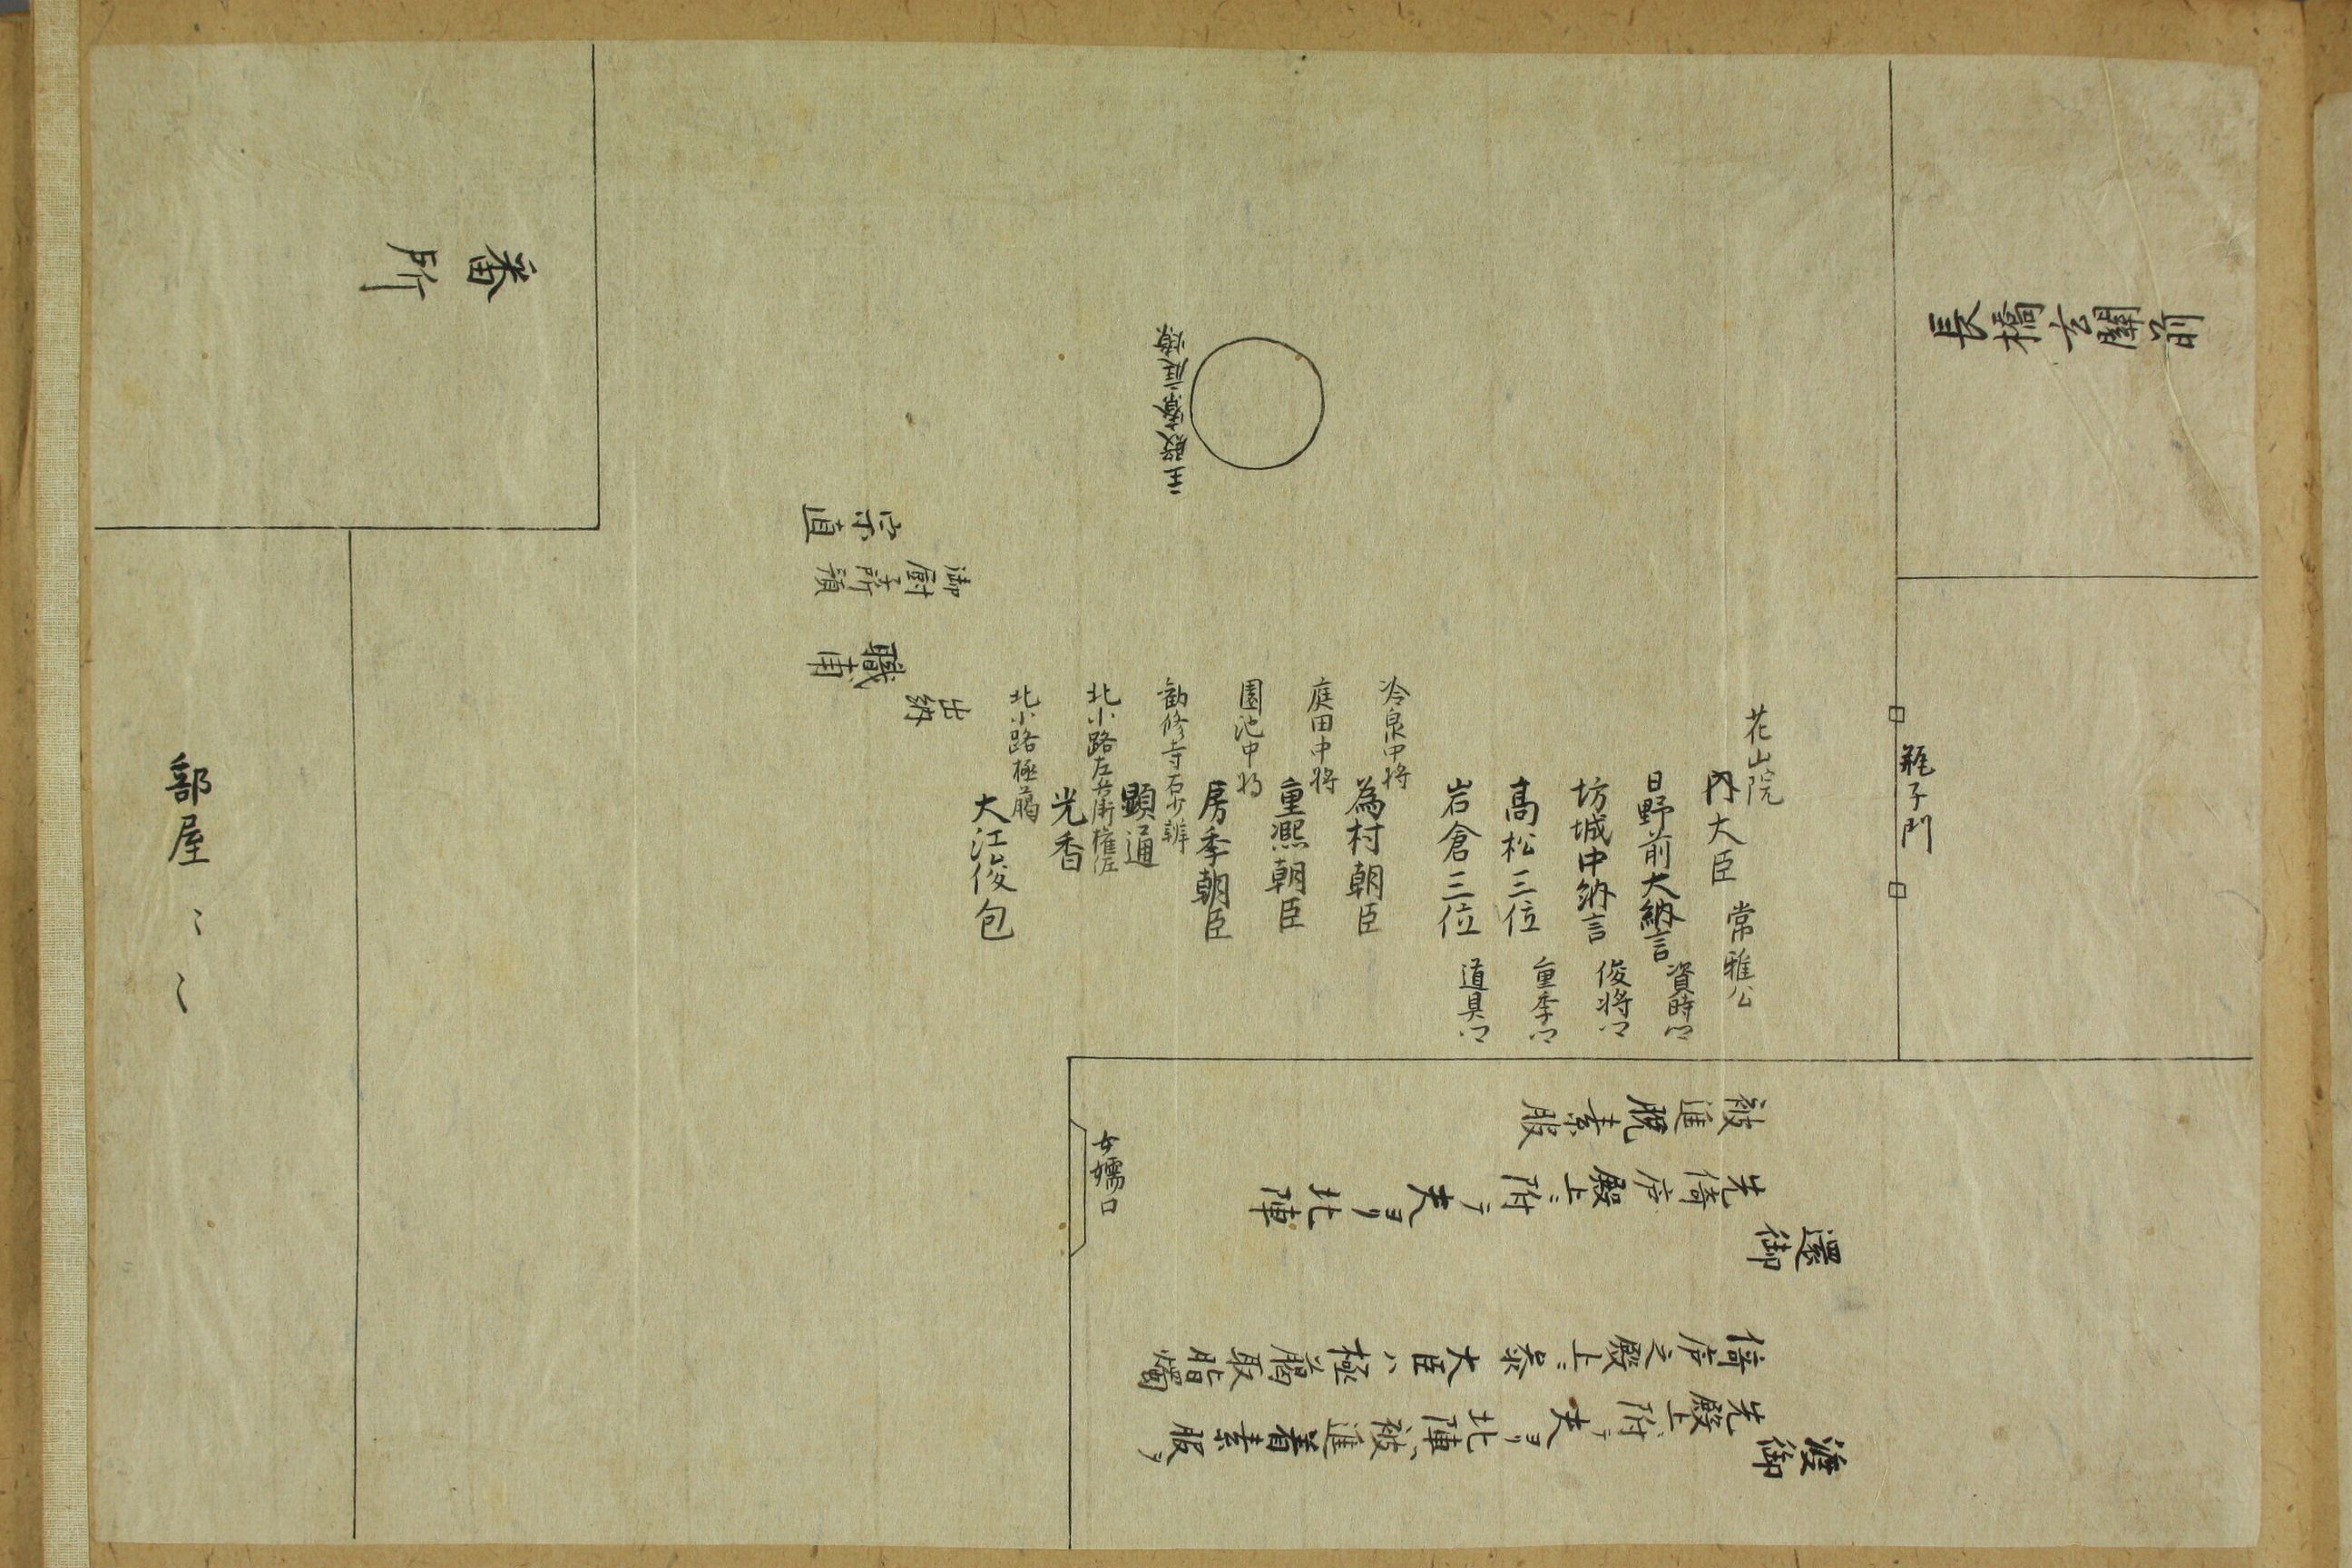 長橋玄関前
瓶子門
花山院
内大臣 常雅公
日野前大納言 資時卿
坊城中納言 俊将卿
高松三位 重季卿
岩倉三位 道具卿
冷泉中将
為村朝臣
庭田中将
重熈朝臣
園池中将
房季朝臣
勧修寺右少辨
顕通
北小路左兵衛権佐
光香
北小路極﨟
大江俊包
出納
職甫
御厨子所預
宗直
主殿寮庭燎
番所
部屋〻〻
女嬬口
渡御
先殿上附テ夫ヨリ北陣被進着素服ヲ
倚庐之殿上ニ参大臣ハ極﨟取脂燭
還御
先倚庐殿上ニ附テ夫ヨリ北陣
被進脱素服